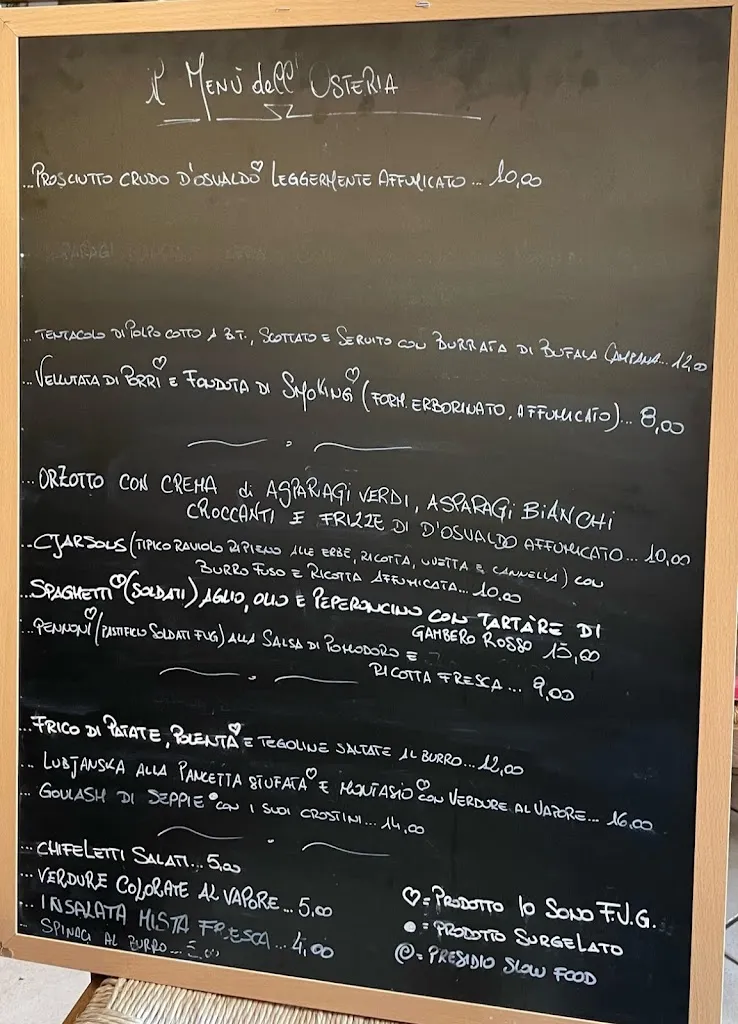 il Menù dell' Osteria
...Prosciutto crudo d'Osvaldo♡ leggermente affumicato... 10,00
...Tentacolo di Polpo cotto a B.T., Scottato e Servito con Burrata di Bufala Campana... 12,00
...Vellutata di Porri♡ e Fonduta di Smoking♡ (Form. erborinato, affumicato)... 8,00
...Orzotto con crema di asparagi verdi, asparagi bianchi
croccanti e frizze di d'Osvaldo affumicato... 10,00
...Cjarsòns (tipico raviolo ripieno alle erbe, ricotta, uvetta e cannella) con
burro fuso e ricotta affumicata... 10,00
...Spaghetti♡ (Soldati) aglio, olio e peperoncino con tartare di
gambero rosso 15,00
...Pennoni♡ (Pastificio Soldati FVG) alla salsa di pomodoro e
ricotta fresca... 9,00
...Frico di Patate, Polenta♡ e tegoline saltate al burro... 12,00
...Lubjanska alla Pancetta stufata♡ e Montasio♡ con verdure al vapore... 16,00
...Goulash di seppie • con i suoi crostini... 14,00
...Chifeletti salati... 5,00
...Verdure colorate al vapore... 5,00
...Insalata mista fresca... 4,00
Spinaci al burro...
♡ = Prodotto Io Sono F.V.G.
• = Prodotto surgelato
@ = Presidio Slow Food